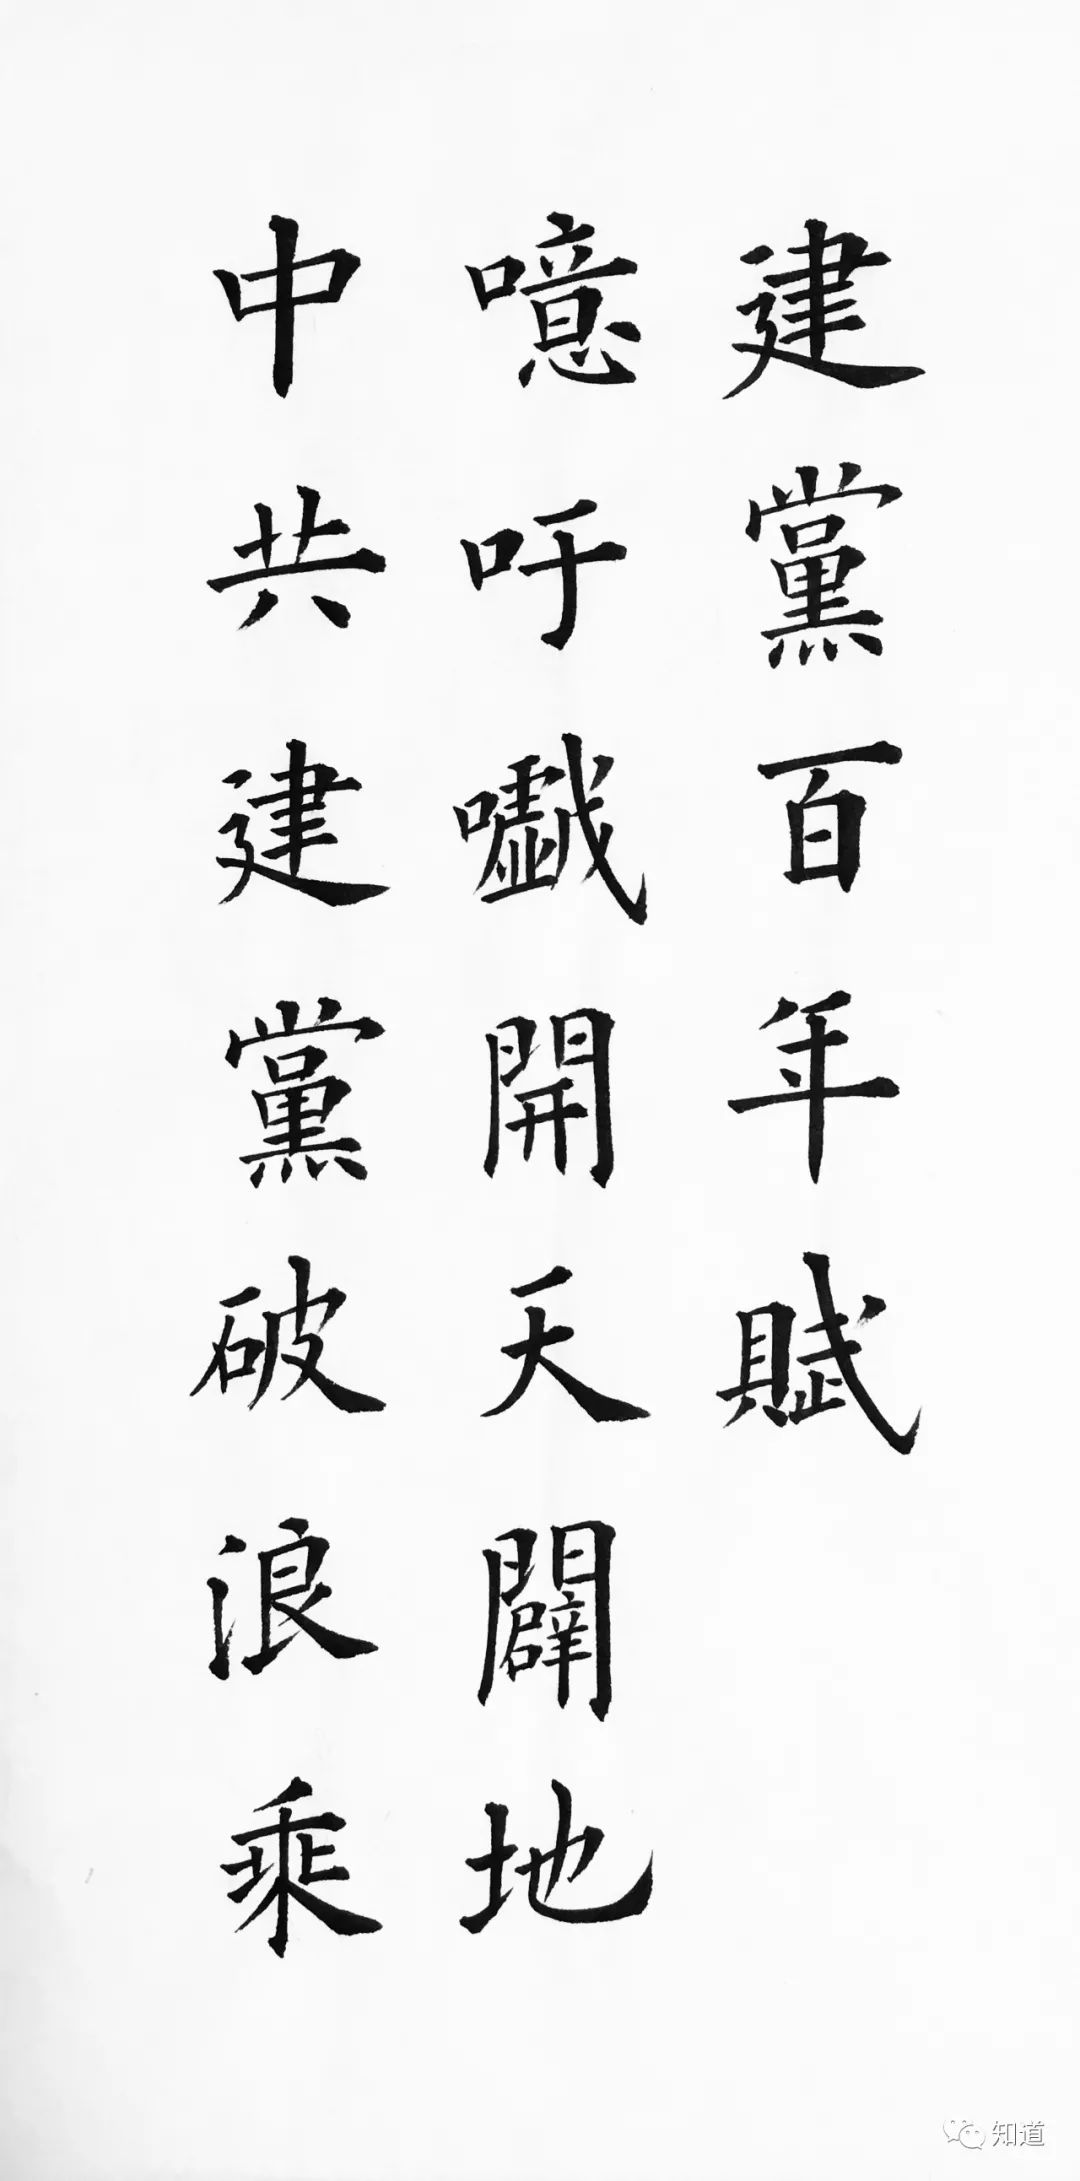 建黨百年賦
噫吁嚱開天闢地
中共建黨破浪乘
知道